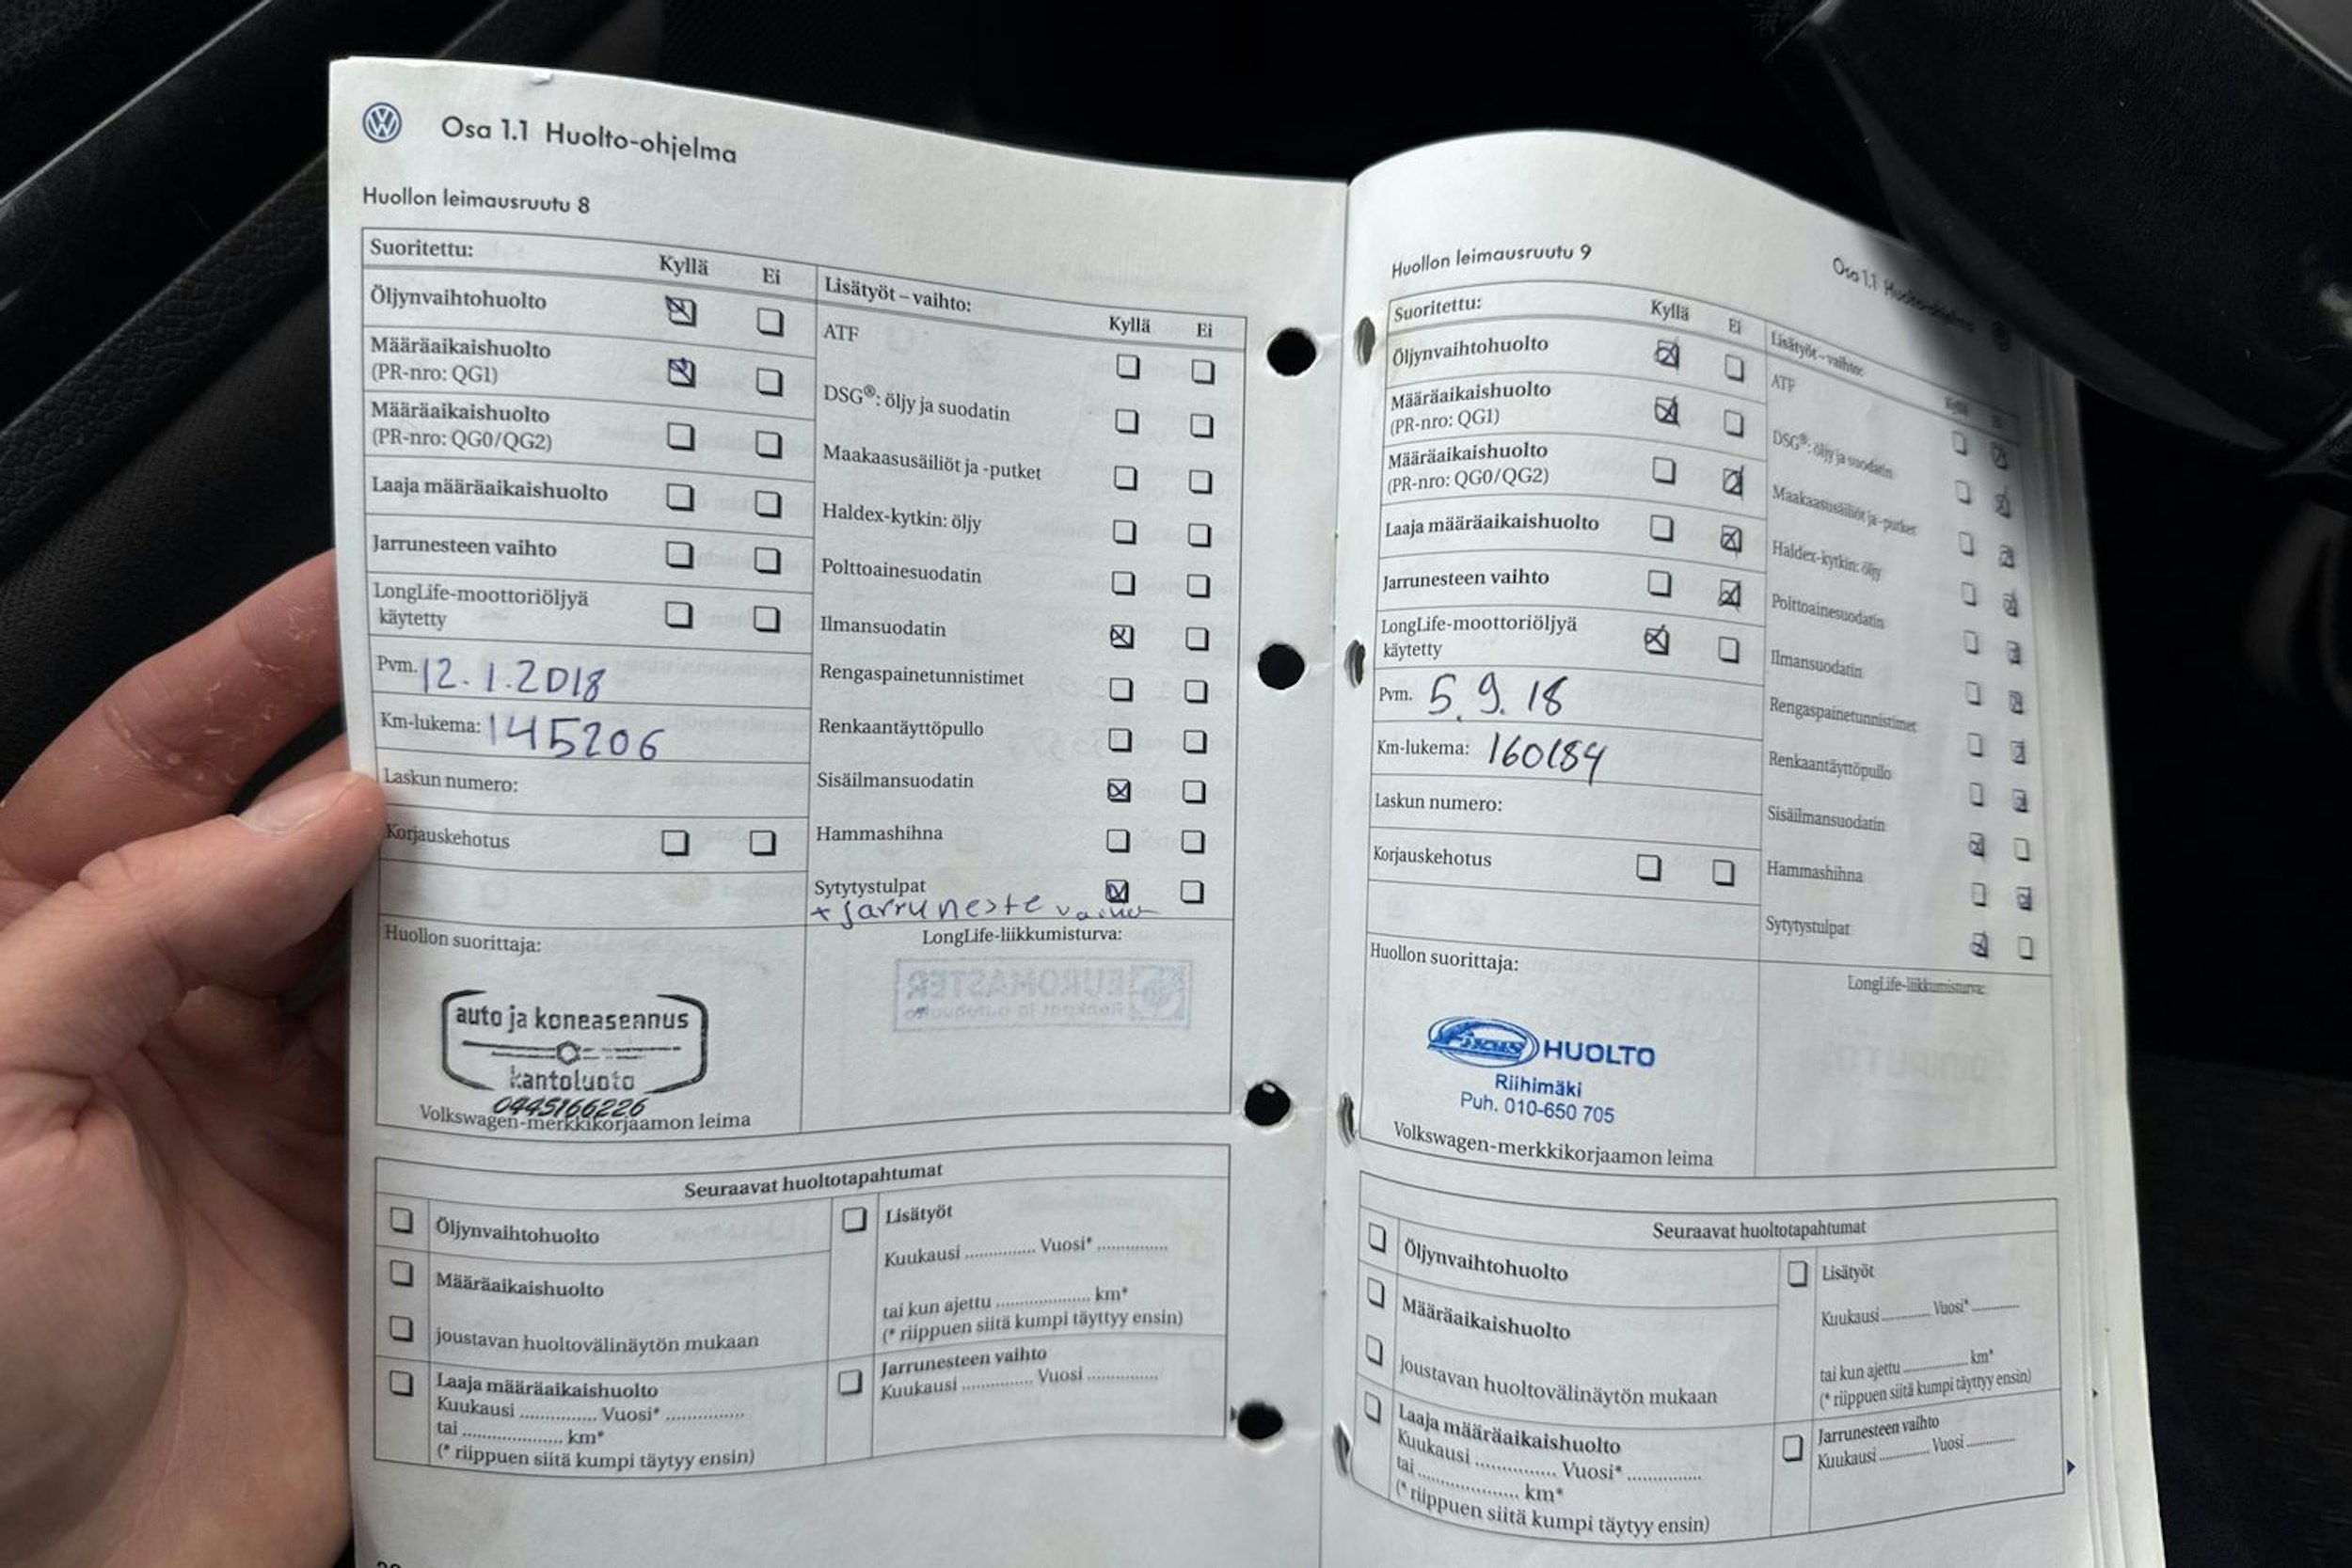 Osa 1.1 Huolto-ohjelma
Huollon leimausruutu 8
Suoritettu:
Kyllä Ei
Öljynvaihtohuolto
Määräaikaishuolto
(PR-nro: QG1)
Määräaikaishuolto
(PR-nro: QG0/QG2)
Laaja määräaikaishuolto
Jarrunesteen vaihto
LongLife-moottoriöljyä
käytetty
Pvm. 12.1.2018
Km-lukema: 145206
Laskun numero:
Korjauskehotus
Lisätyöt – vaihto:
Kyllä Ei
ATF
DSG®: öljy ja suodatin
Maakaasusäiliöt ja -putket
Haldex-kytkin: öljy
Polttoainesuodatin
Ilmansuodatin
Rengaspainetunnistimet
Renkaantäyttöpullo
Sisäilmansuodatin
Hammashihna
Sytytystulpat
+ jarruneste
Huollon suorittaja:
auto ja koneasennus
kantoluoto
0445166226
Volkswagen-merkkikorjaamon leima
LongLife-liikkumisturva:
EUROMASTER
Seuraavat huoltotapahtumat
Öljynvaihtohuolto
Määräaikaishuolto
joustavan huoltovälinäytön mukaan
Laaja määräaikaishuolto
Kuukausi ............... Vuosi* ...............
tai .................... km*
(* riippuen siitä kumpi täytyy ensin)
Lisätyöt
Kuukausi .............. Vuosi* ..............
tai kun ajettu .................... km*
(* riippuen siitä kumpi täyttyy ensin)
Jarrunesteen vaihto
Kuukausi .............. Vuosi ..............
Osa 1.1 Huolto-ohjelma
Huollon leimausruutu 9
Suoritettu:
Kyllä Ei
Öljynvaihtohuolto
Määräaikaishuolto
(PR-nro: QG1)
Määräaikaishuolto
(PR-nro: QG0/QG2)
Laaja määräaikaishuolto
Jarrunesteen vaihto
LongLife-moottoriöljyä
käytetty
Pvm. 5.9.18
Km-lukema: 160184
Laskun numero:
Korjauskehotus
Lisätyöt – vaihto:
Kyllä Ei
ATF
DSG®: öljy ja suodatin
Maakaasusäiliöt ja -putket
Haldex-kytkin: öljy
Polttoainesuodatin
Ilmansuodatin
Rengaspainetunnistimet
Renkaantäyttöpullo
Sisäilmansuodatin
Hammashihna
Sytytystulpat
Huollon suorittaja:
HUOLTO
Riihimäki
Puh. 010-650 705
Volkswagen-merkkikorjaamon leima
LongLife-liikkumisturva:
Seuraavat huoltotapahtumat
Öljynvaihtohuolto
Määräaikaishuolto
joustavan huoltovälinäytön mukaan
Laaja määräaikaishuolto
Kuukausi ............... Vuosi* ..............
tai .................... km*
(* riippuen siitä kumpi täytyy ensin)
Lisätyöt
Kuukausi ............ Vuosi* ............
tai kun ajettu ................ km*
(* riippuen siitä kumpi täyttyy ensin)
Jarrunesteen vaihto
Kuukausi ............ Vuosi ............